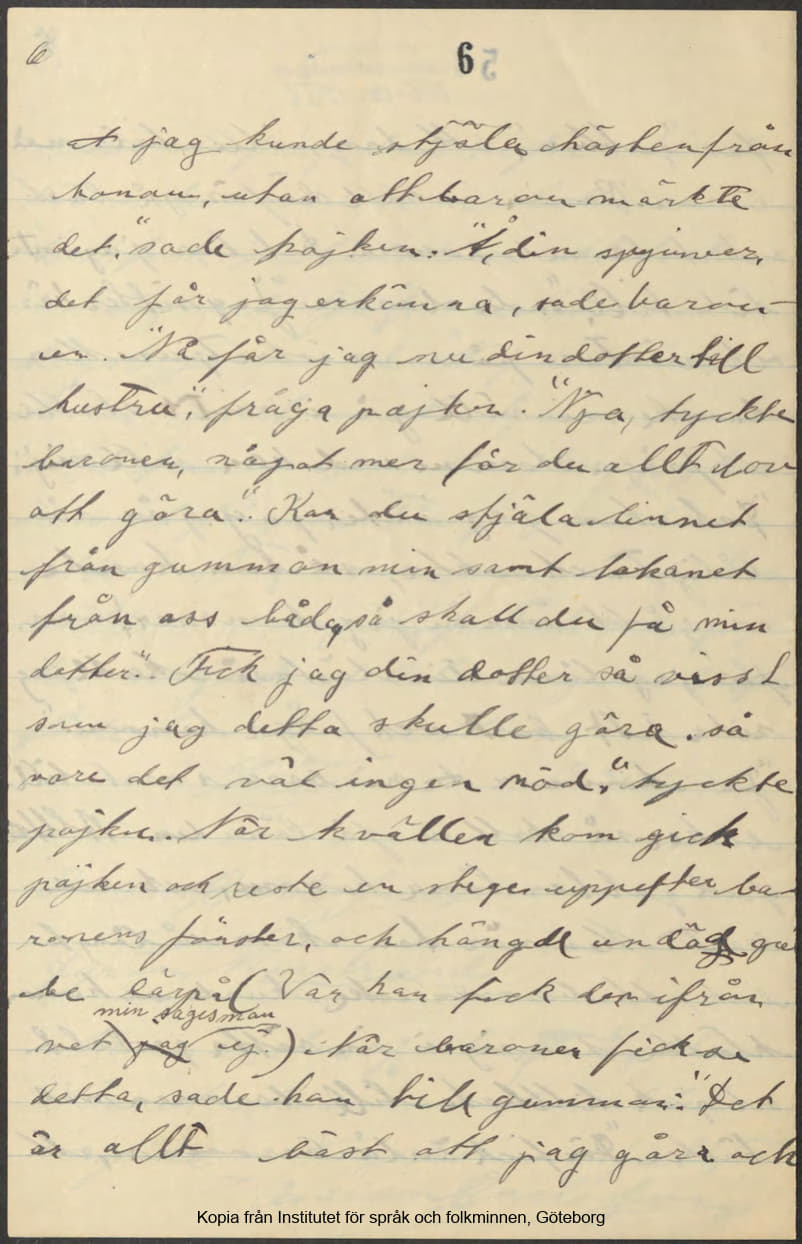 6
6
at jag kunde stjäla hästen från
honom, utan att baron märkte
det," sade pojken: "A, din
det får jag erkänna, sade baron-
en. "Nå får jag nu din dotter till
hustru", fråga pojken. "Nja, tyckte
baronen, något mer får du allt lov
att göra". Kan du stjäla linnet
från gumman min samt lakanet
från oss båda, så skall du få min
dotter". Fick jag din dotter så visst
som jag detta skulle göra. så
vore det väl ingen nöd," tyckte
pojken. När kvällen kom gick
pojken och reste en stege uppefter ba-
ronens fönster, och hängde en död gu
be därpå (Var han fick den ifrån
min sagesman
vet jag ej.) När baronen fick se
detta, sade han till gumman: "Det
är allt bäst att jag går och
Kopia från Institutet för språk och folkminnen, Göteborg